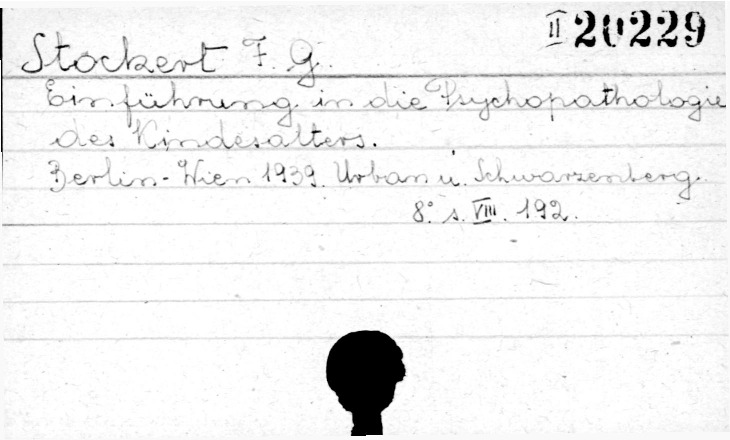 II 20229
Stockert F. G.
Einführung in die Psychopathologie
des Kindesalters.
Berlin-Wien 1939. Urban u. Schwarzenberg.
8° s. VIII. 192.